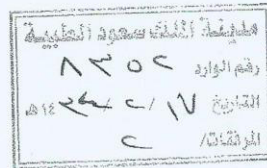 مدينة الملك سعود الطبية
رقم الوارد ٨٣٥٢
التاريخ ١٧/٢/ ١٤هـ
المرفقات/ ٢